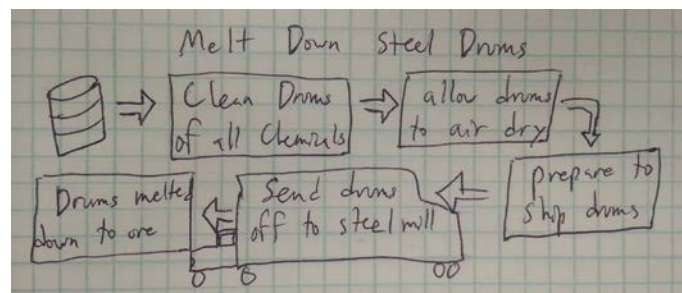 Melt Down Steel Drums
Clean Drums
of all Chemicals
allow drums
to air dry
prepare to
ship drums
Send drums
off to steel mill
Drums melted
down to ore